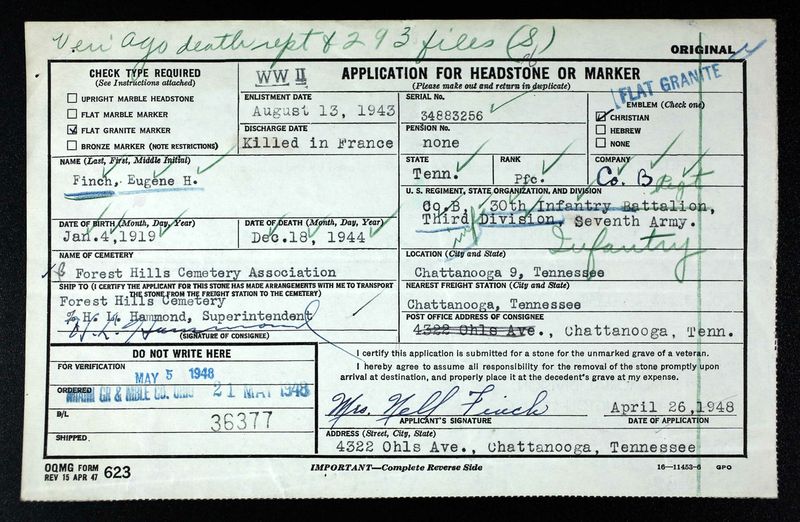 Veri Ago death rept & 293 files (S)
ORIGINAL
CHECK TYPE REQUIRED
(See Instructions attached)
UPRIGHT MARBLE HEADSTONE
FLAT MARBLE MARKER
FLAT GRANITE MARKER
BRONZE MARKER (NOTE RESTRICTIONS)
WW II
APPLICATION FOR HEADSTONE OR MARKER
(Please make out and return in duplicate)
FLAT GRANITE
ENLISTMENT DATE
August 13, 1943
DISCHARGE DATE
Killed in France
SERIAL No.
34883256
PENSION No.
none
EMBLEM (Check one)
CHRISTIAN
HEBREW
NONE
NAME (Last, First, Middle Initial)
Finch, Eugene H.
STATE
Tenn.
RANK
Pfc.
COMPANY
Co. B
Regt
U. S. REGIMENT, STATE ORGANIZATION, AND DIVISION
Co.B, 30th Infantry Battalion,
Third Division, Seventh Army.
Inf
Infantry
DATE OF BIRTH (Month, Day, Year)
Jan.4,1919
DATE OF DEATH (Month, Day, Year)
Dec.18, 1944
NAME OF CEMETERY
Forest Hills Cemetery Association
LOCATION (City and State)
Chattanooga 9, Tennessee
SHIP TO (I CERTIFY THE APPLICANT FOR THIS STONE HAS MADE ARRANGEMENTS WITH ME TO TRANSPORT
THE STONE FROM THE FREIGHT STATION TO THE CEMETERY)
Forest Hills Cemetery
% H. L. Hammond, Superintendent
H. L. Hammond
(SIGNATURE OF CONSIGNEE)
NEAREST FREIGHT STATION (City and State)
Chattanooga, Tennessee
POST OFFICE ADDRESS OF CONSIGNEE
4322 Ohls Ave., Chattanooga, Tenn.
DO NOT WRITE HERE
FOR VERIFICATION
MAY 5 1948
ORDERED
MIAMI GR & MBLE CO. OHIO 21 MAY 1948
B/L
36377
SHIPPED
I certify this application is submitted for a stone for the unmarked grave of a veteran.
I hereby agree to assume all responsibility for the removal of the stone promptly upon
arrival at destination, and properly place it at the decedent's grave at my expense.
Mrs. Nell Finch
APPLICANT'S SIGNATURE
April 26,1948
DATE OF APPLICATION
ADDRESS (Street, City, State)
4322 Ohls Ave., Chattanooga, Tennessee
OQMG FORM
REV 15 APR 47
623
IMPORTANT—Complete Reverse Side
16—11453-6 GPO